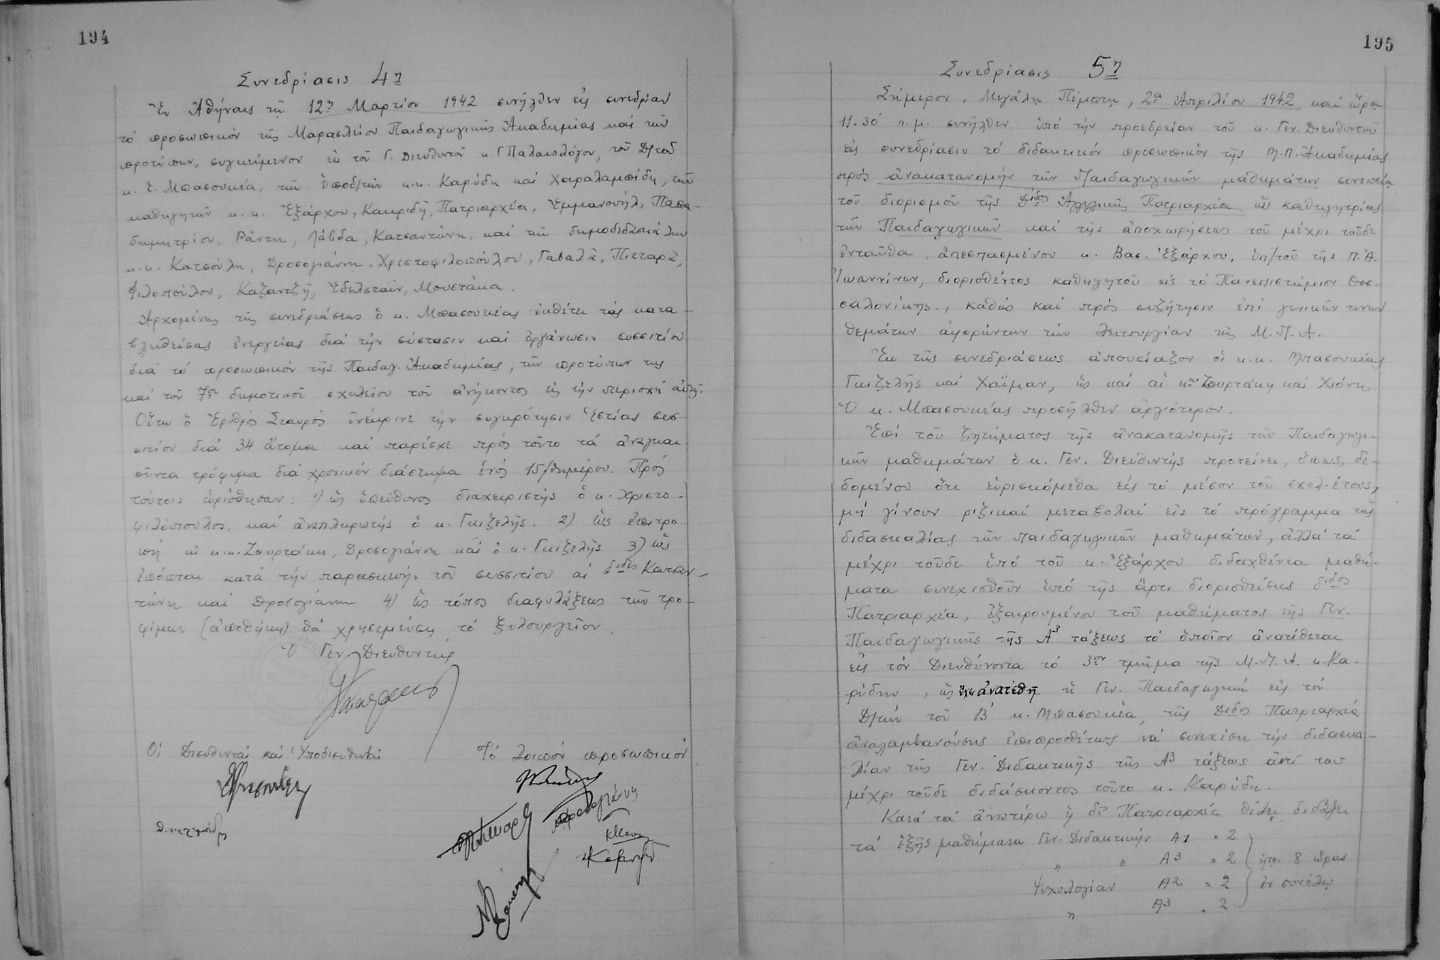 194
Συνεδρίασις 4η
Ἐν Ἀθήναις τῇ 12ῃ Μαρτίου 1942 συνῆλθεν εἰς συνεδρίαν
τό προσωπικόν τῆς Μαρασλείου Παιδαγωγικῆς Ἀκαδημίας καί τῶν
προτύπων, συγκείμενον ἐκ τοῦ Γ. Διευθυντοῦ κ. Γ. Παλαιολόγου, τοῦ Δ/τοῦ
κ. Ε. Μπασουκέα, τῶν ὑποδ/τῶν κ.κ. Καρύδη καί Χαραλαμπίδη, τῶν
καθηγητῶν κ.κ. Ἐξάρχου, Κακριδῆ, Πατριαρχέα, Ἐμμανουήλ, Παπα-
δημητρίου, Ράντη, Λάβδα, Κατσαντώνη, καί τῶν δημοδιδασκάλων
κ.κ. Κατσούλη, Δροσογιάννη, Χριστοφιλοπούλου, Γαβαλᾶ, Πιτταρᾶ,
Φιλοπούλου, Καζαντζῆ, Ἐδελστάϊν, Μουστάκα.
Ἀρχομένης τῆς συνεδριάσεως ὁ κ. Μπασουκέας ἐκθέτει τάς κατα-
βληθείσας ἐνεργείας διά τήν σύστασιν καί ὀργάνωσιν συσσιτίου
διά τό προσωπικόν τῆς Παιδαγ. Ἀκαδημίας, τῶν προτύπων της
καί τοῦ 7ου δημοτικοῦ σχολείου τοῦ ἀνήκοντος εἰς τήν περιοχή αὐτῆς.
Οὕτω ὁ Ἐρυθρός Σταυρός ἐνέκρινε τήν συγκρότησιν Ἑστίας συσ-
σιτίου διά 34 ἄτομα καί παρέσχε πρός τοῦτο τά ἀναγκαι-
οῦντα τρόφιμα διά χρονικόν διάστημα ἑνός 15/θημέρου. Πρός
τούτοις ὡρίσθησαν: 1) ὡς ὑπεύθυνος διαχειριστής ὁ κ. Χριστο-
φιλόπουλος, καί ἀναπληρωτής ὁ κ. Γκιζελῆς. 2) Ὡς ἐπιτρο-
πή αἱ κ.κ. Ζουρτάκη, Δροσογιάννη καί ὁ κ. Γκιζελῆς 3) ὡς
ἐπόπται κατά τήν παρασκευήν τοῦ συσσιτίου αἱ δ/ιδες Κατσαν-
τώνη καί Δροσογιάννη 4) ὡς τόπος διαφυλάξεως τῶν τρο-
φίμων (ἀποθήκη) θά χρησιμεύσῃ τό ξυλουργεῖον
Ὁ Γεν. Διευθυντής
Οἱ Διευθυνταί καί Ὑποδιευθυνταί
Τό λοιπόν προσωπικόν
195
Συνεδρίασις 5η
Σήμερον, Μεγάλη Πέμπτη, 2α Ἀπριλίου 1942 καί ὥρα
11.30΄ π.μ. συνῆλθεν ὑπό τήν προεδρείαν τοῦ κ. Γεν. Διευθυντοῦ
εἰς συνεδρίασιν τό διδακτικόν προσωπικόν τῆς Μ.Π. Ἀκαδημίας
πρός ἀνακατανομήν τῶν Παιδαγωγικῶν μαθημάτων συνεπείᾳ
τοῦ διορισμοῦ τῆς Δ/ίδος Ἀγγελικῆς Πατριαρχέα ὡς καθηγητρίας
τῶν Παιδαγωγικῶν καί τῆς ἀποχωρήσεως τοῦ μέχρι τοῦδε
ἐνταῦθα ἀπεσπασμένου κ. Βασ. Ἐξάρχου, ὑπ/τοῦ τῆς Π.Ἀ.
Ἰωαννίνων, διορισθέντος καθηγητοῦ εἰς τό Πανεπιστήμιον Θεσ-
σαλονίκης, καθώς καί πρός συζήτησιν ἐπί γενικῶν τινων
θεμάτων ἀφορώντων τήν λειτουργίαν τῆς Μ.Π.Α.
Ἐκ τῆς συνεδριάσεως ἀπουσίαζον οἱ κ.κ. Μπασουκέας
Γκιζελῆς καί Χάϊμαν, ὡς καί αἱ κ. Ζουρτάκη καί Χιόνη.
Ὁ κ. Μπασουκέας προσῆλθεν ἀργότερον.
Ἐπί τοῦ ζητήματος τῆς ἀνακατανομῆς τῶν Παιδαγωγι-
κῶν μαθημάτων ὁ κ. Γεν. Διευθυντής προτείνει, ὅπως, δε-
δομένου ὅτι εὑρισκόμεθα εἰς τό μέσον τοῦ σχολ. ἔτους,
μή γίνουν ριζικαί μεταβολαί εἰς τό πρόγραμμα τῆς
διδασκαλίας τῶν παιδαγωγικῶν μαθημάτων, ἀλλά τά
μέχρι τοῦδε ὑπό τοῦ κ. Ἐξάρχου διδαχθέντα μαθή-
ματα συνεχισθοῦν ὑπό τῆς ἄρτι διορισθείσης δ/ίδος
Πατριαρχέα, ἐξαιρουμένου τοῦ μαθήματος τῆς Γεν.
Παιδαγωγικῆς τῆς Α3 τάξεως τό ὁποῖον ἀνατίθεται
εἰς τόν Διευθύνοντα τό 3ον τμῆμα τῆς Μ.Π.Α. κ. Κα-
ρύδην, ὡς ἀνατεθῇ ἡ Γεν. Παιδαγωγική εἰς τόν
Δ/τήν τοῦ Β΄ κ. Μπασουκέα, τῆς Δ/δος Πατριαρχέα
ἀναλαμβανούσης ἐπιπροσθέτως νά συνεχίσῃ τήν διδασκα-
λίαν τῆς Γεν. Διδακτικῆς τῆς Α3 τάξεως ἀντί του
μέχρι τοῦδε διδάσκοντος τοῦτο κ. Καρύδη.
Κατά τά ἀνωτέρω ἡ δ/ς Πατριαρχέα θέλει διδάξει
τά ἑξῆς μαθήματα Γεν. Διδακτικήν Α1 = 2
" " Α3 = 2 ἤτοι 8 ὥρας
Ψυχολογίαν Α2 = 2 ἐν συνόλῳ
" Α3 = 2